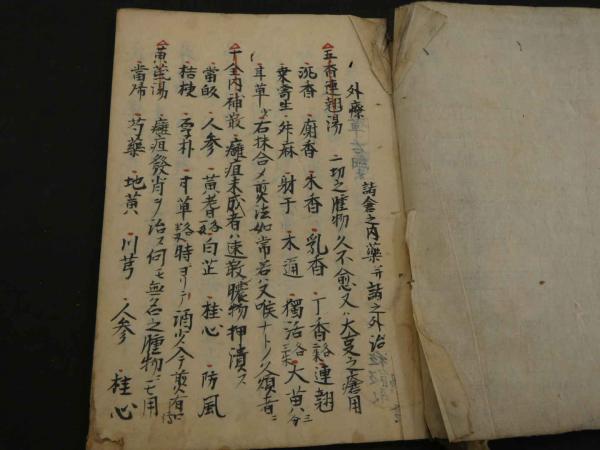 外療
諸倉之内薬并諸之外治
五香連翹湯 一切之腫物久不愈又ハ大変之瘡用
沈香 麝香 木香 乳香 丁香 連翹
桑寄生 升麻 射干 木通 獨活 大黄
甘草 右抹合〆煎法如常若ハ又喉ナトノ煩者ニ
千金内補散 癰疽未成者ハ速散膿物押潰ス
當皈 人参 黄耆 白芷 桂心 防風
桔梗 厚朴 甘草 時ヨリテ酒少入今煎
黄芪湯 癰疽發背ヲ治ス何モ無名之腫物ニモ用
當帰 芍藥 地黄 川芎 人参 桂心